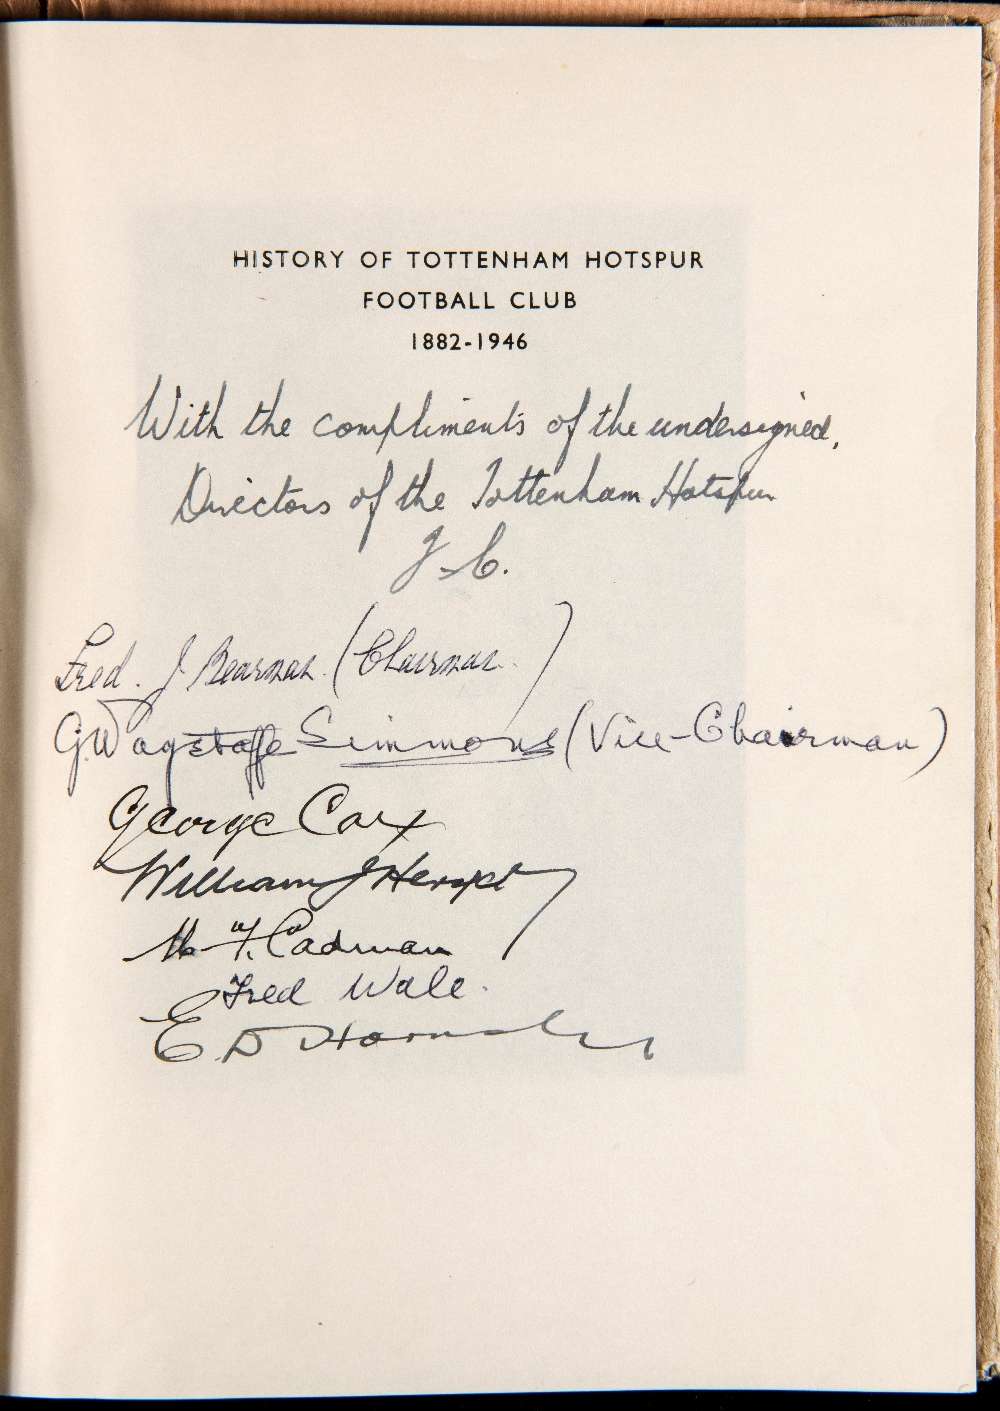 HISTORY OF TOTTENHAM HOTSPUR
FOOTBALL CLUB
1882-1946
With the compliments of the undersigned,
Directors of the Tottenham Hotspur
F.C.
Fred. J Bearman. (Chairman.)
G. Wagstaffe Simmons (Vice-Chairman)
George Cox
William J Heryet
F. Cadman
Fred Wale.
E D